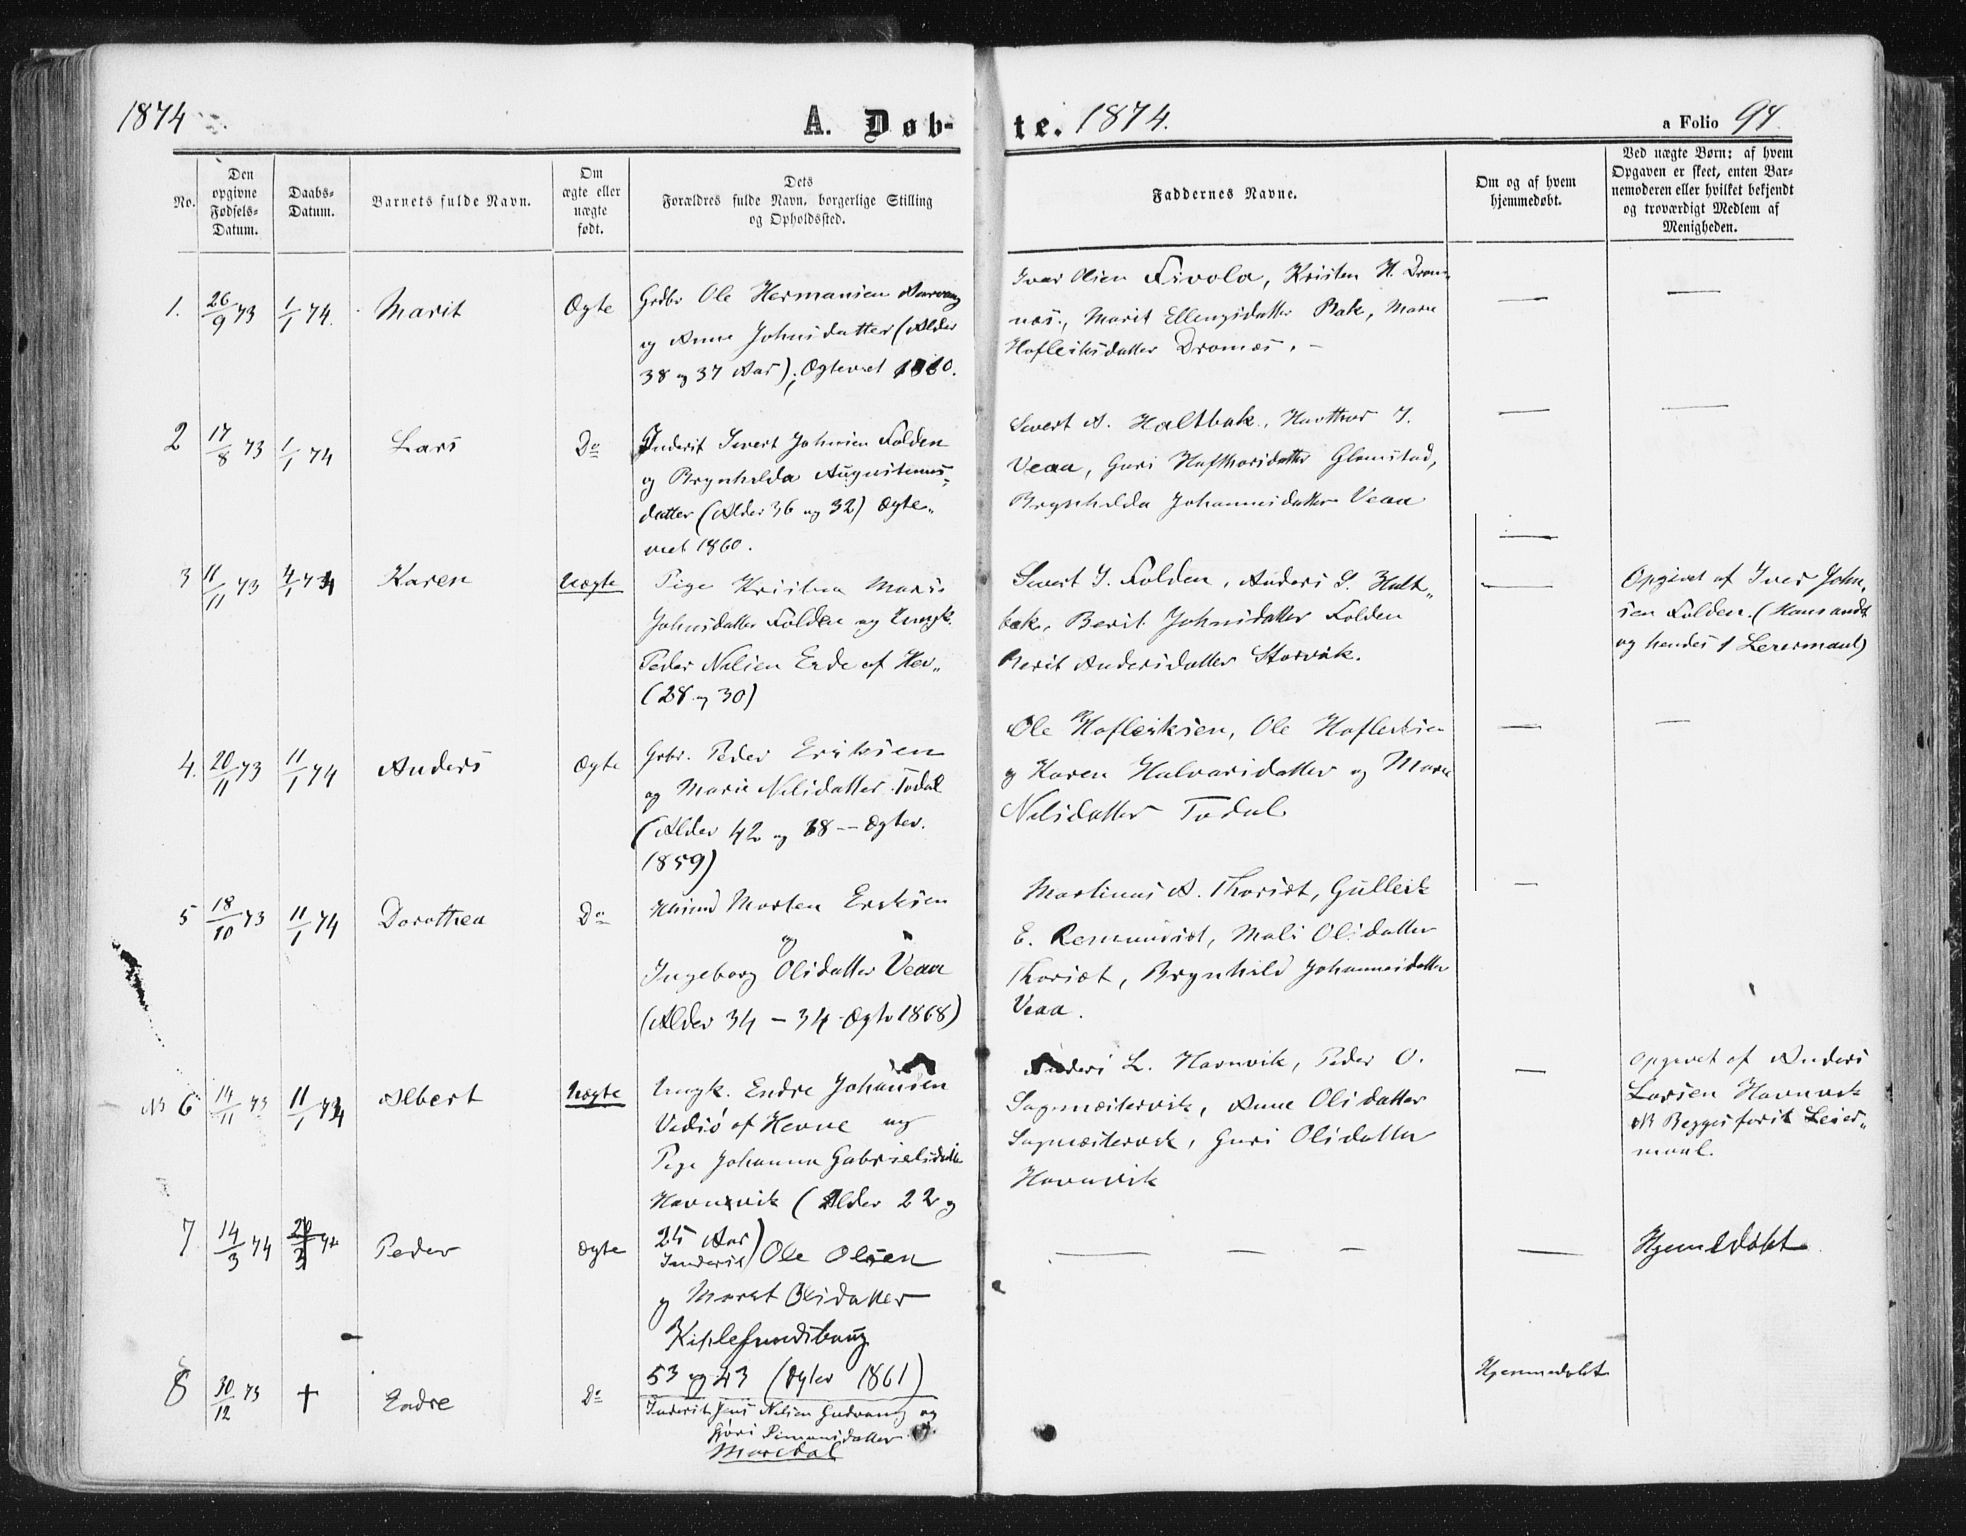 1874
A. Døb-
te. 1874.
a Folio 94.
No.
Den opgivne Fødsels-Datum.
Daabs-Datum.
Barnets fulde Navn.
Om ægte eller uægte født.
Dets Forældres fulde Navn, borgerlige Stilling og Opholdssted.
Faddernes Navne.
Om og af hvem hjemmedøbt.
Ved uægte Børn: af hvem Opgaven er skeet, enten Barnemoderen eller hvilket bekjendt og troværdigt Medlem af Menigheden.
1. 26/9 73 1/1 74. Marit Ægte
Grdbr Ole Hermansen
og Anne Johnsdatter (Alder
38 og 37 Aar); Ægteviet 1860.
Ivar Olsen Fivola, Kristen H. Drom-
næs., Marit Ellengsdatter Bak, Marie
Hofleiksdatter Dromæs. -
2 17/8 73 1/1 74 Lars Do
Inderst Sivert Johnsen Folden
og Brynhilda Augustinus-
datter (Alder 36 og 32) Ægte-
viet 1860.
Sivert A. Haltbak, Havthor J.
Veaa, Guri Hafthorsdatter Glamstad,
Brynhilda Johannesdatter Veaa
3 11/11 73 4/1 74 Karen Uægte
Pige Kristina Maria
Johnsdatter Folden og Ungk.
Peder Nilsen Eide af Hev-
(28 og 30)
Sivert J. Folden, Anders S. Halt-
bak, Berit Johnsdatter Folden
Berit Andersdatter Storvik.
Opgivet af Iver John-
sen Folden. (Hans andet
og hendes 1 Leiermaal)
4. 20/11 73 11/1 74 Anders Ægte
Grbr. Peder Eriksen
og Marie Nilsdatter Todal
(Alder 42 og 38 — Ægtev.
1859)
Ole Hofleiksen, Ole Hofleiksen
og Karen Halvarsdatter og Marie
Nilsdatter Todal
5 18/10 73 11/1 74 Dorothea Do
Husmd Morten Eriksen
og
Ingeborg Olsdatter Veaa
(Alder 34 – 34 Ægtv 1868)
Martinus A. Thorsæt, Gullerk
E. Remundset, Mali Olsdatter
Thorsæt, Brynhild Johannesdatter
Veaa.
NB 6 14/11 73 11/1 74 Albert Uægte
Ungk. Endre Johansen
Vedsø af Hevne og
Pige Johanna Gabrielsdatter
Havnsvik (Alder 22 og
25 Aar)
Anders L. Havnvik, Peder O.
Sagmæstervik, Anne Olsdatter
Sagmæstervik, Guri Olsdatter
Havnvik
Opgivet af Anders
Larsen Havnvik
NB Begges første Leier-
maal.
7. 14/3 74 Peder Ægte
Inderst Ole Olsen
og Marit Olsdatter
53 og 43 (Ægtev 1861)
Hjemdøbt.
8 30/12 73 † Endre Do
Inderst Jens Nilsen og
Simonsdatter
Hjemmedøbt